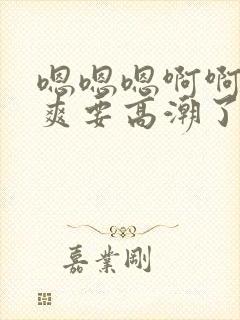 嗯嗯嗯啊啊
爽要高潮了
嘉業剛